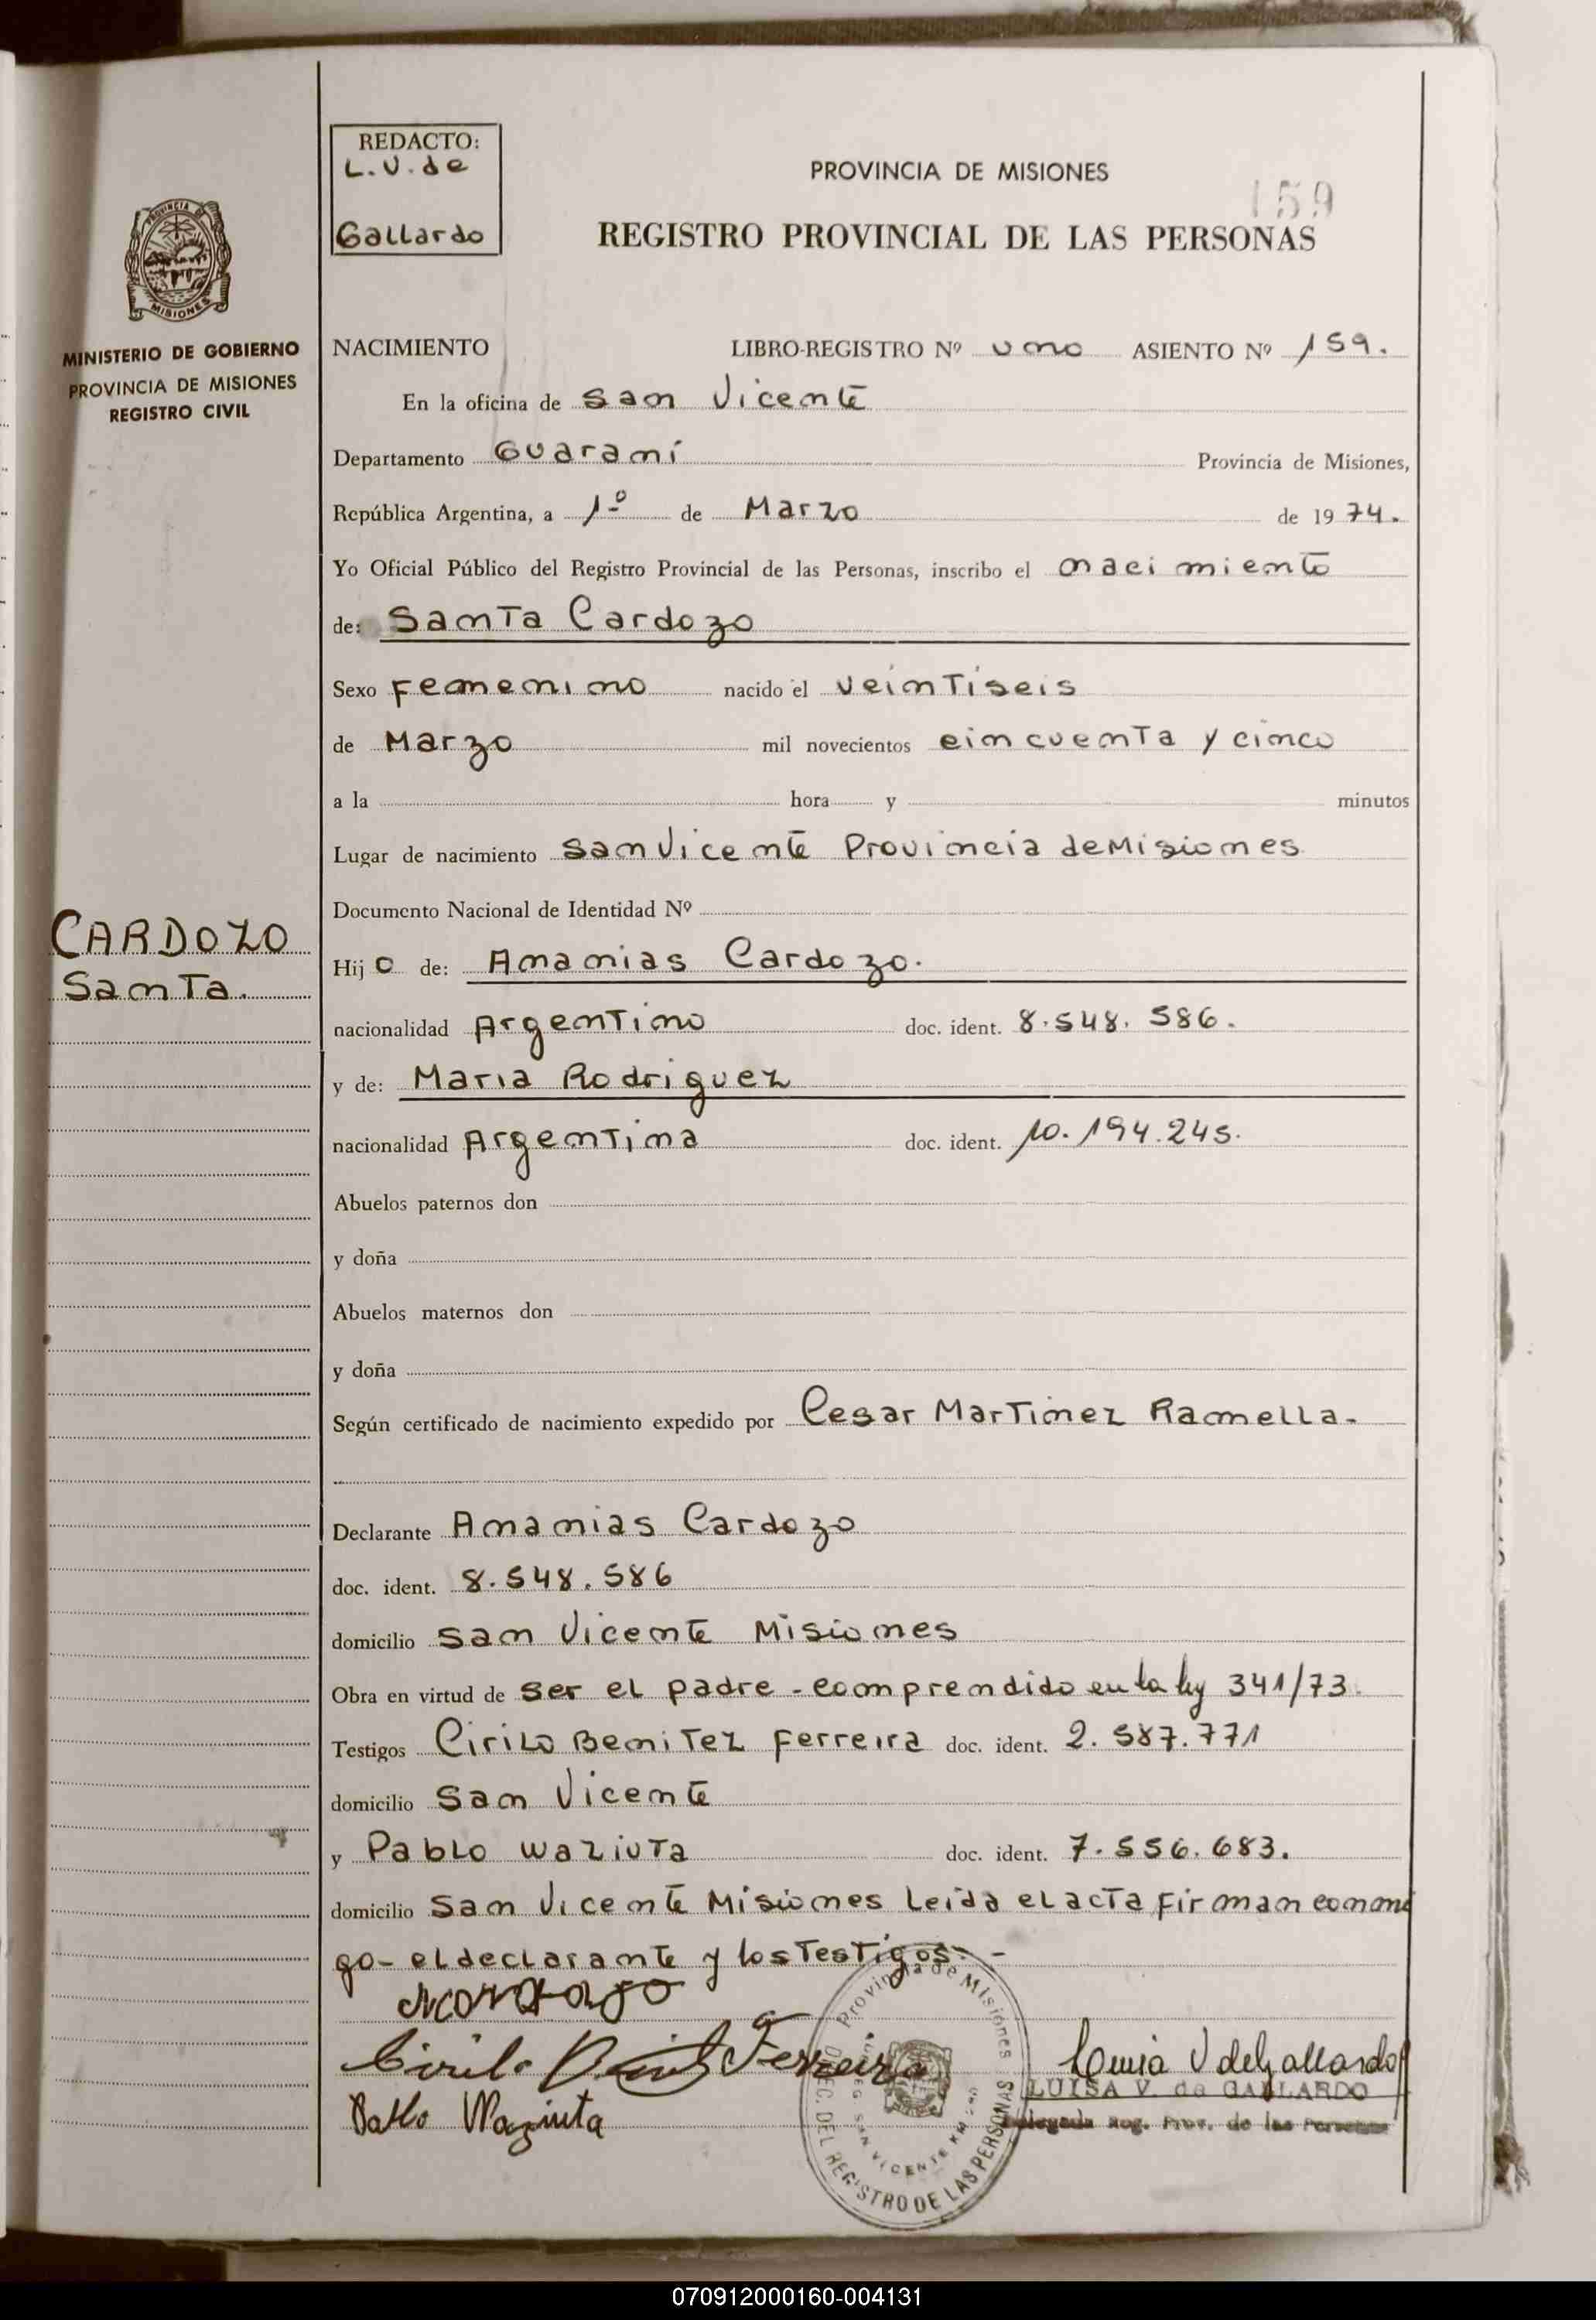 REDACTO:
L.V. de
Gallardo
PROVINCIA DE MISIONES
159
REGISTRO PROVINCIAL DE LAS PERSONAS
PROVINCIA DE
MISIONES
MINISTERIO DE GOBIERNO
PROVINCIA DE MISIONES
REGISTRO CIVIL
NACIMIENTO LIBRO-REGISTRO Nº uno ASIENTO Nº 159.
En la oficina de San Vicente
Departamento Guaraní Provincia de Misiones,
República Argentina, a 1º de Marzo de 1974.
Yo Oficial Público del Registro Provincial de las Personas, inscribo el nacimiento
de: Santa Cardozo
Sexo Femenino nacido el veintiseis
de Marzo mil novecientos cincuenta y cinco
a la hora y minutos
Lugar de nacimiento San Vicente Provincia de Misiones
Documento Nacional de Identidad Nº
CARDOZO
Santa.
Hijo de: Ananias Cardozo.
nacionalidad Argentino doc. ident. 8.548.586.
y de: Maria Rodriguez
nacionalidad Argentina doc. ident. 10.194.245.
Abuelos paternos don
y doña
Abuelos maternos don
y doña
Según certificado de nacimiento expedido por Cesar Martinez Ramella.
Declarante Ananias Cardozo
doc. ident. 8.548.586
domicilio San Vicente Misiones
Obra en virtud de ser el padre - comprendido en la ley 341/73.
Testigos Cirilo Benitez Ferreira doc. ident. 2.587.771
domicilio San Vicente
y Pablo Waziuta doc. ident. 7.556.683.
domicilio San Vicente Misiones Leida el acta firman conmi
go - el declarante y los testigos. -
Cirilo Ferreira
Luisa V de Gallardo
LUISA V. de GALLARDO
Pablo Waziuta
Delegada Reg. Prov. de las Personas
Provincia de Misiones
DEL REGISTRO DE LAS PERSONAS
SAN VICENTE
070912000160-004131